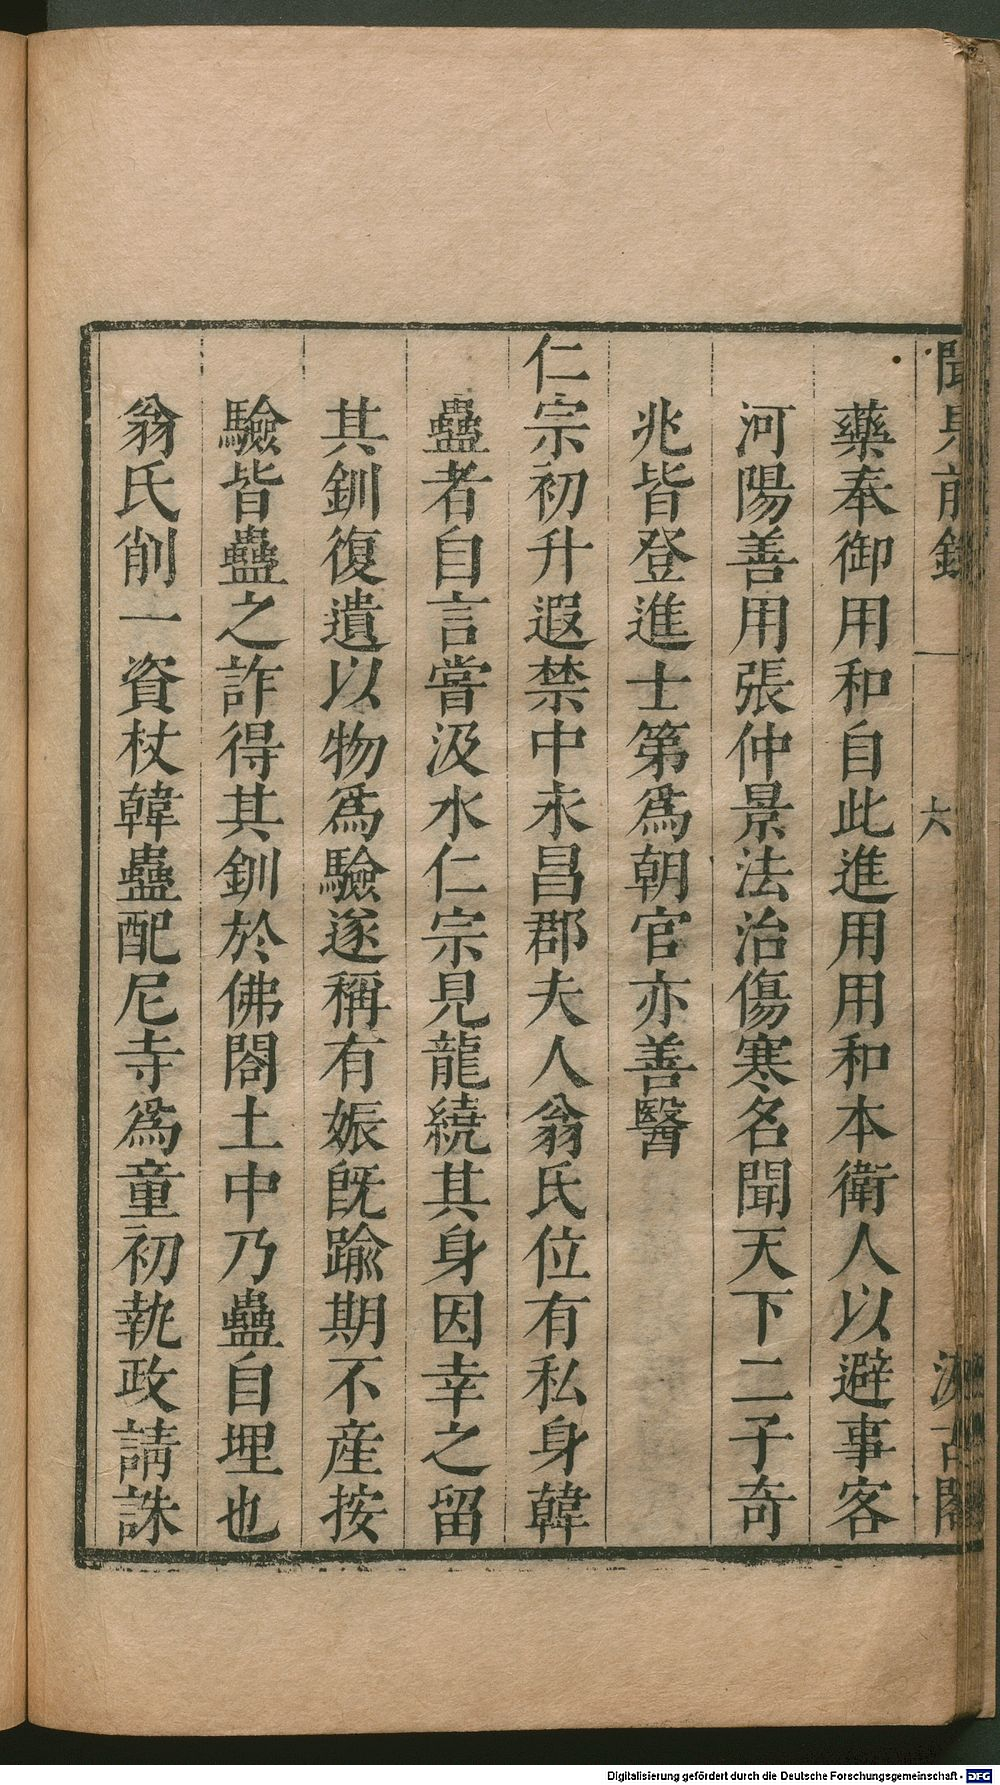 聞見前錄
一
六
汲古閣
藥奉御用和自此進用用和本衛人以避事客
河陽善用張仲景法治傷寒名聞天下二子奇
兆皆登進士第爲朝官亦善醫
仁宗初升遐禁中永昌郡夫人翁氏位有私身韓
蠱者自言嘗汲水仁宗見龍繞其身因幸之留
其釧復遺以物爲驗遂稱有娠旣踰期不産按
驗皆蠱之詐得其釧於佛閤土中乃蠱自埋也
翁氏削一資杖韓蠱配尼寺爲童初執政請誅
Digitalisierung gefördert durch die Deutsche Forschungsgemeinschaft - DFG